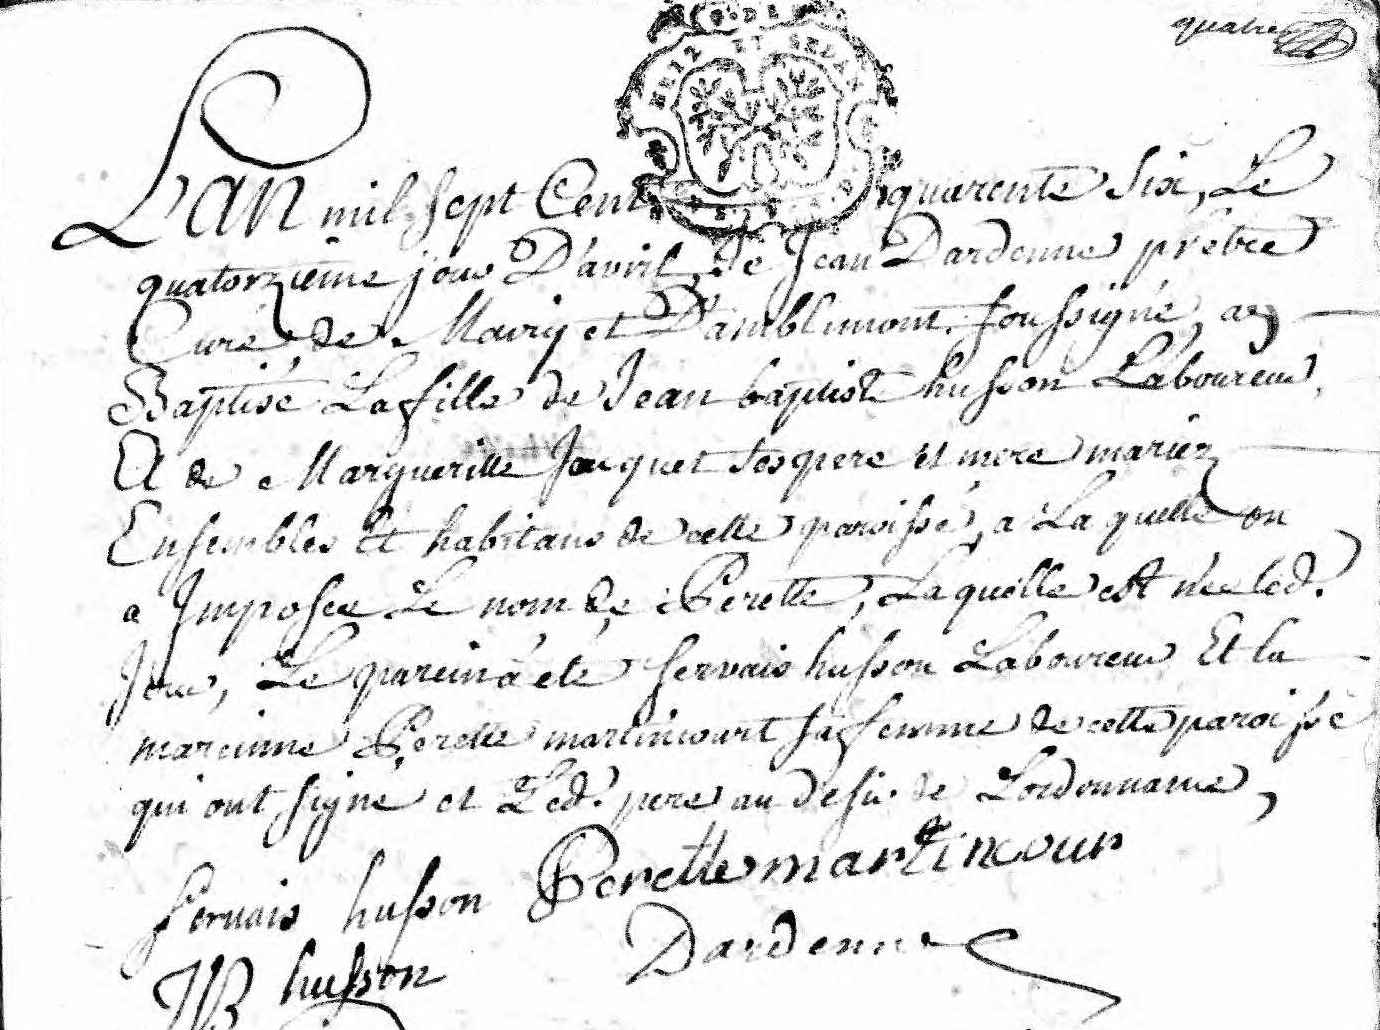 quatre
METZ ET SEDAN
L'an mil sept Cent quarente Six, Le
quatorzieme jour D'avril, Je Jean Dardenne prêtre
Curé de Mairy et D'amblimont soussigné, ay
Baptisé La fille de Jean baptiste husson Laboureur,
Et de Margueritte Jacquet ses pere et mere mariez
Ensembles Et habitans de cette paroisse, a Laquelle on
a Imposee Le nom de Perette, Laquelle est née led.
Jour, Le parein a eté servais husson Laboureur Et la
mareinne Perette martincourt sa femme de cette paroisse
qui ont signé et Led. pere au desir de Lordonnance,
servais husson Perette martincour
JB husson Dardenne